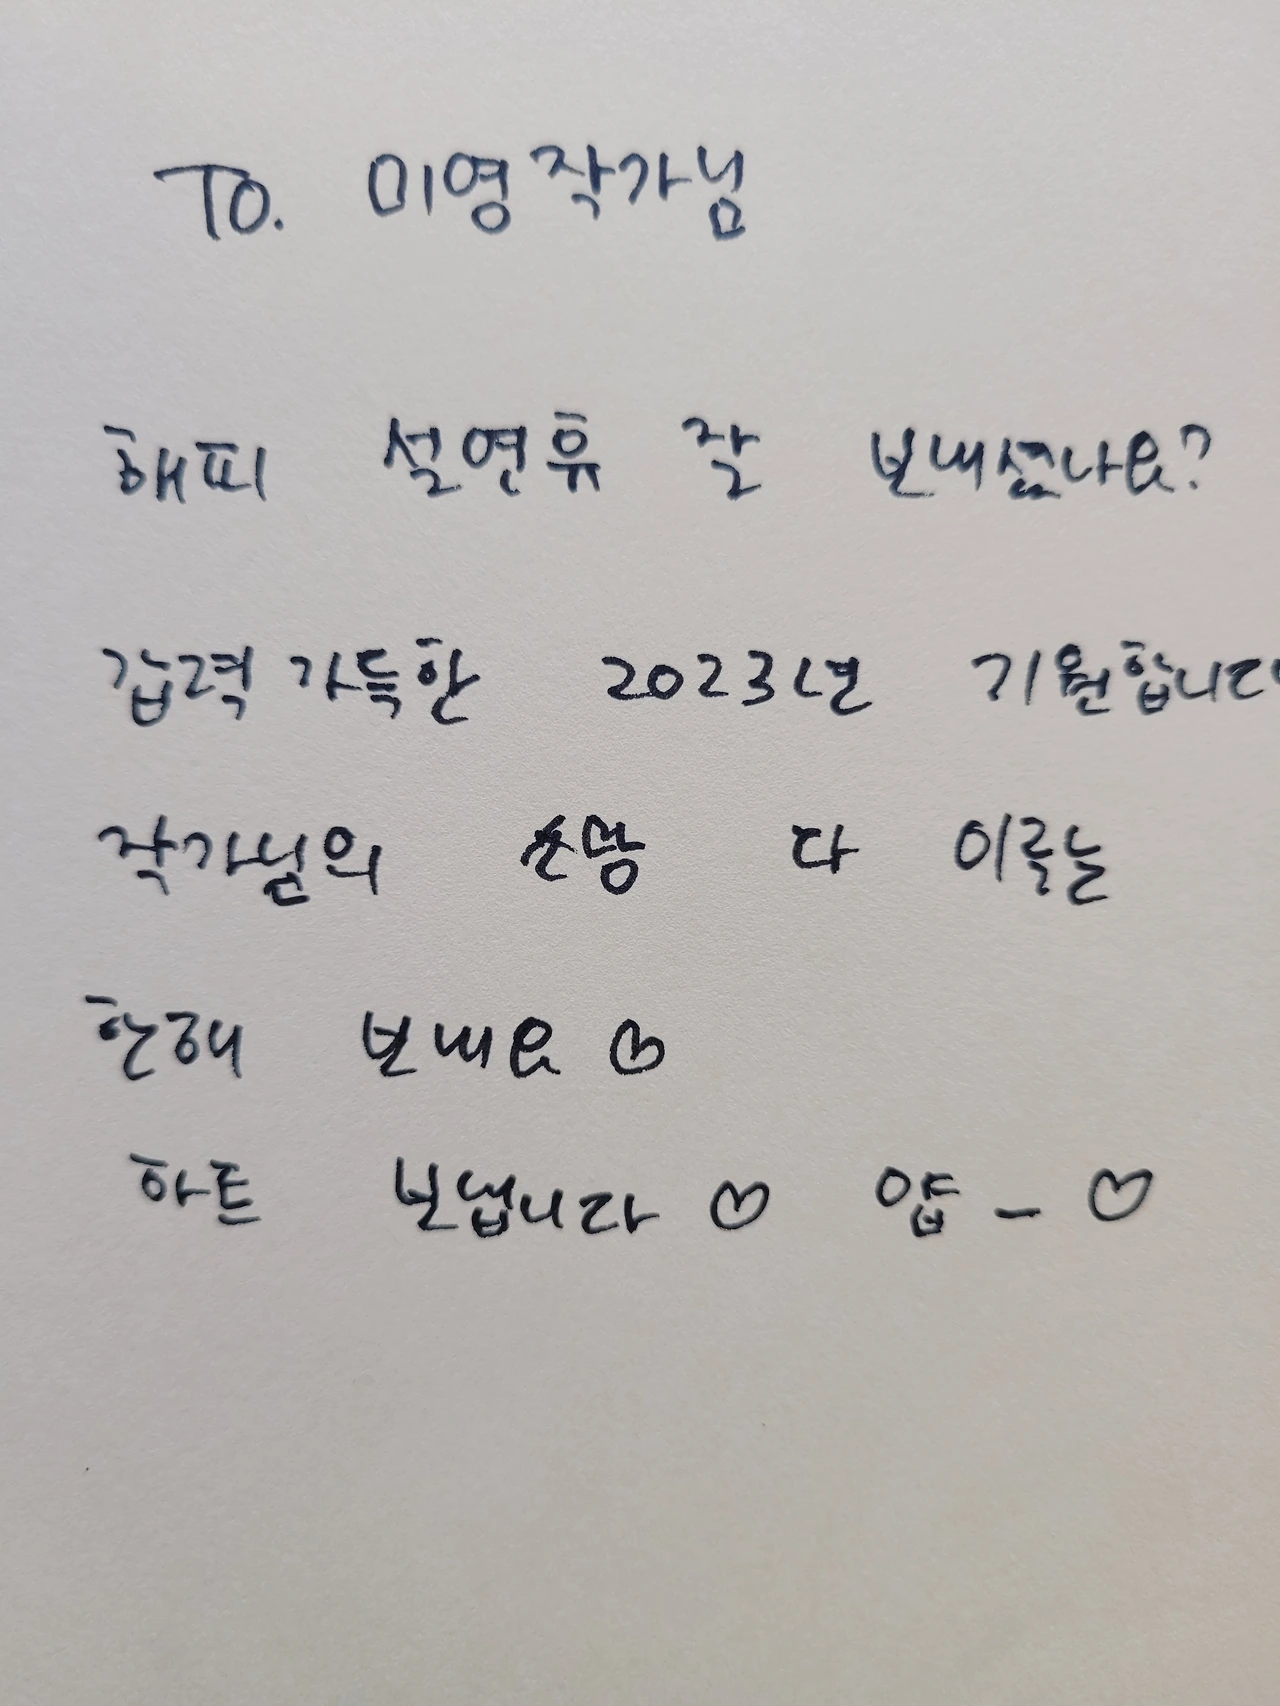 To. 미영작가님
해피 설연휴 잘 보내셨나요?
갑력가득한 2023년 기원합니다
작가님의 소망 다 이루는
한해 보내요♡
하트 보냅니다♡ 얍-♡